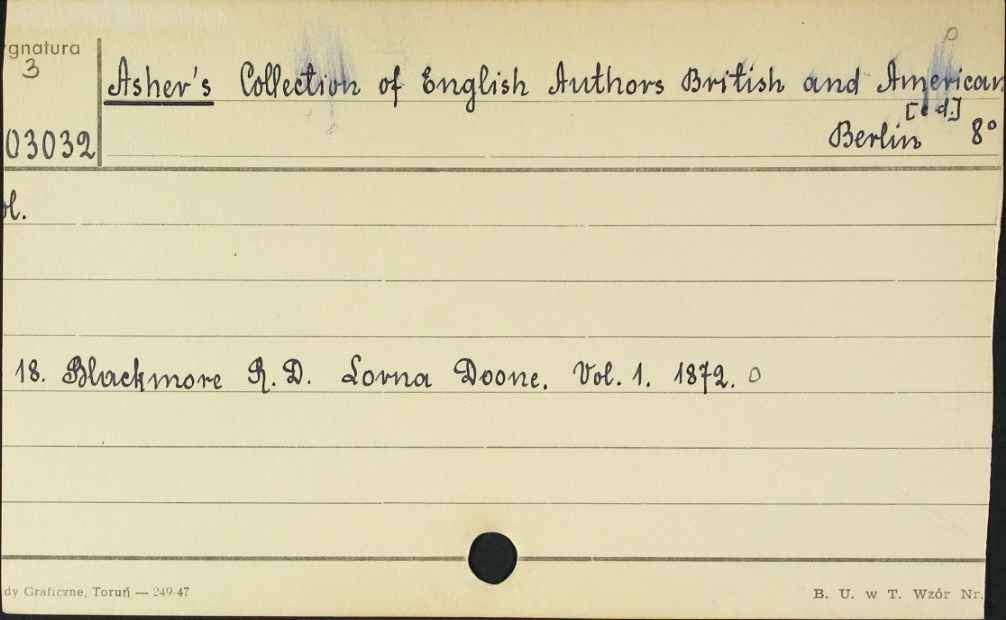 gnatura
3
Asher's Collection of English Authors British and American
[e d.]
03032 Berlin 8°
ol.
18. Blackmore R. D. Lorna Doone. Vol. 1. 1872. o
dy Graficzne, Toruń — 249-47 B. U. w T. Wzór Nr.